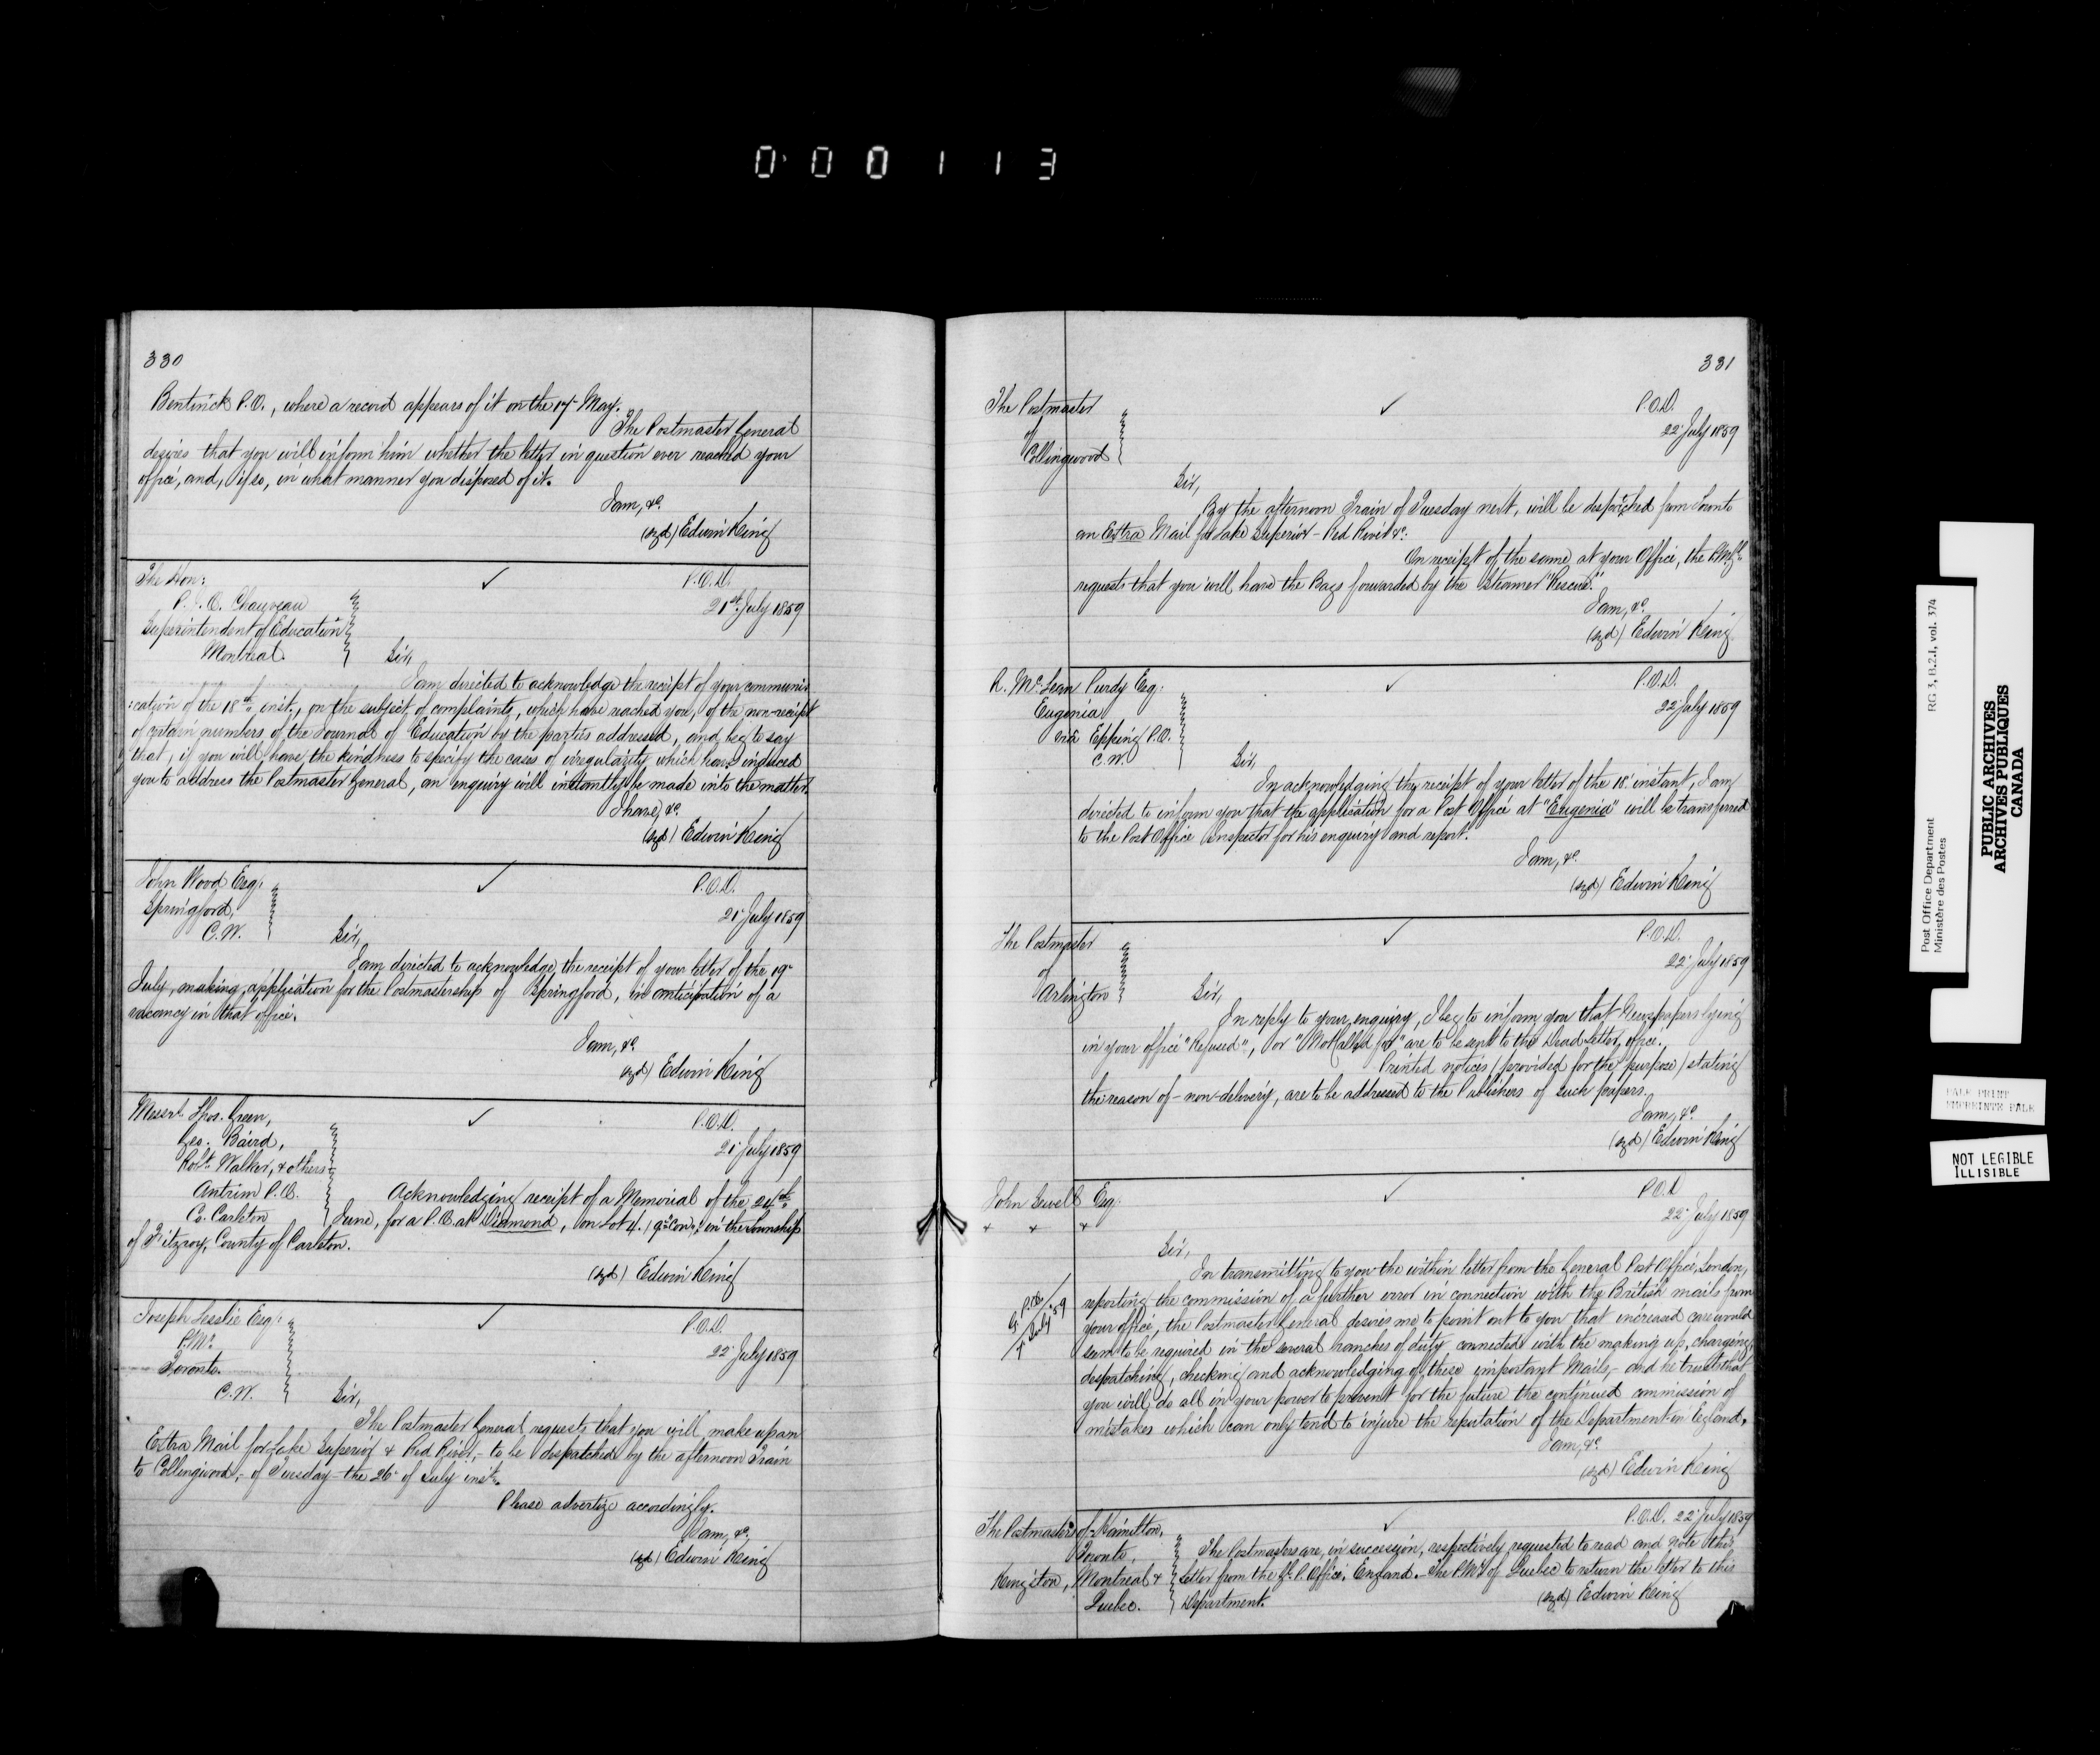 0 0 0 1 1 3
330
Bentinck P.O., where a record appears of it on the 17 May.
The Postmaster General
desires that you will inform him whether the letter in question ever reached your
office, and, if so, in what manner you disposed of it.
I am, &c.
(sgd) Edwin King
The Hon:
P.O.D.
P. J. O. Chauveau
21st July 1859
Superintendent of Education
Montreal.
Sir,
I am directed to acknowledge the receipt of your communi
:cation of the 18th inst., on the subject of complaints, which have reached you, of the non-receipt
of certain numbers of the Journal of Education by the parties addressed, and beg to say
that, if you will have the kindness to specify the cases of irregularity which have induced
you to address the Postmaster General, an enquiry will instantly be made into the matter.
I have, &c.
(sgd) Edwin King
John Wood Esq:
P.O.D.
Springford,
21 July 1859
C.W.
Sir,
I am directed to acknowledge the receipt of your letter of the 19
July, making application for the Postmastership of Springford, in anticipation of a
vacancy in that office.
I am, &c.
(sgd) Edwin King
Messrs. Thos. Green,
P.O.D.
Geo. Baird,
21 July 1859
Robt. Walker, & others
Antrim P.O.
Acknowledging receipt of a Memorial of the 24th
Co. Carleton
June, for a P.O. at Diamond, on Lot 4. 9th Con., in the Township
of Fitzroy, County of Carleton.
(sgd) Edwin King
Joseph Lesslie Esq:
P.O.D.
P.M.
22 July 1859
Toronto.
C.W.
Sir,
The Postmaster General requests that you will make up an
Extra Mail for Lake Superior & Red River, - to be despatched by the afternoon Train
to Collingwood, - of Tuesday - the 26 of July inst.
Please advertize accordingly.
I am, &c.
(sgd) Edwin King
331
The Postmaster
P.O.D.
of
22 July 1859
Collingwood
Sir,
By the afternoon Train of Tuesday next, will be dispatched from Toronto
an Extra Mail for Lake Superior - Red River &c.
On receipt of the same at your Office, the P.M.Gl.
requests that you will have the Bags forwarded by the Steamer "Rescue."
I am, &c.
(sgd) Edwin King
R. McLean Purdy Esq:
P.O.D.
Eugenia
22 July 1859
via Epping P.O.
C.W.
Sir,
In acknowledging the receipt of your letter of the 18 instant, I am
directed to inform you that the application for a Post Office at "Eugenia" will be transferred
to the Post Office Inspector for his enquiry and report.
I am, &c.
(sgd) Edwin King
The Postmaster
P.O.D.
of
22 July 1859
Arlington
Sir,
In reply to your enquiry, I beg to inform you that Newspapers lying
in your office "Refused", or "Not called for" are to be sent to the Dead Letter office.
Printed notices (provided for the purpose) stating
the reason of - non-delivery, are to be addressed to the Publishers of such papers.
I am, &c.
(sgd) Edwin King
John Sewell Esq:
P.O.D
22 July 1859
Sir,
In transmitting to you the within letter from the General Post Office, London,
G.P.O. 7 July '59
reporting the commission of a further error in connection with the British mails from
your office, the Postmaster General desires me to point out to you that increased care would
seem to be required in the several branches of duty connected with the making up, charging,
despatching, checking and acknowledging of these important Mails, - and he trusts that
you will do all in your power to prevent for the future the continued commission of
mistakes which can only tend to injure the reputation of the Department in England.
I am, &c.
(sgd) Edwin King
P.O.D. 22 July 1859
The Postmasters of Hamilton,
Toronto,
The Postmasters are, in succession, respectively requested to read and note this
Kingston, Montreal &
letter from the Gl. P. Office, England. - The P.M. of Quebec to return the letter to this
Quebec.
Department.
(sgd) Edwin King
Post Office Department
Ministère des Postes
RG 3, B.2.I, vol. 374
PUBLIC ARCHIVES
ARCHIVES PUBLIQUES
CANADA
PALE PRINT
EMPREINTE PALE
NOT LEGIBLE
ILLISIBLE